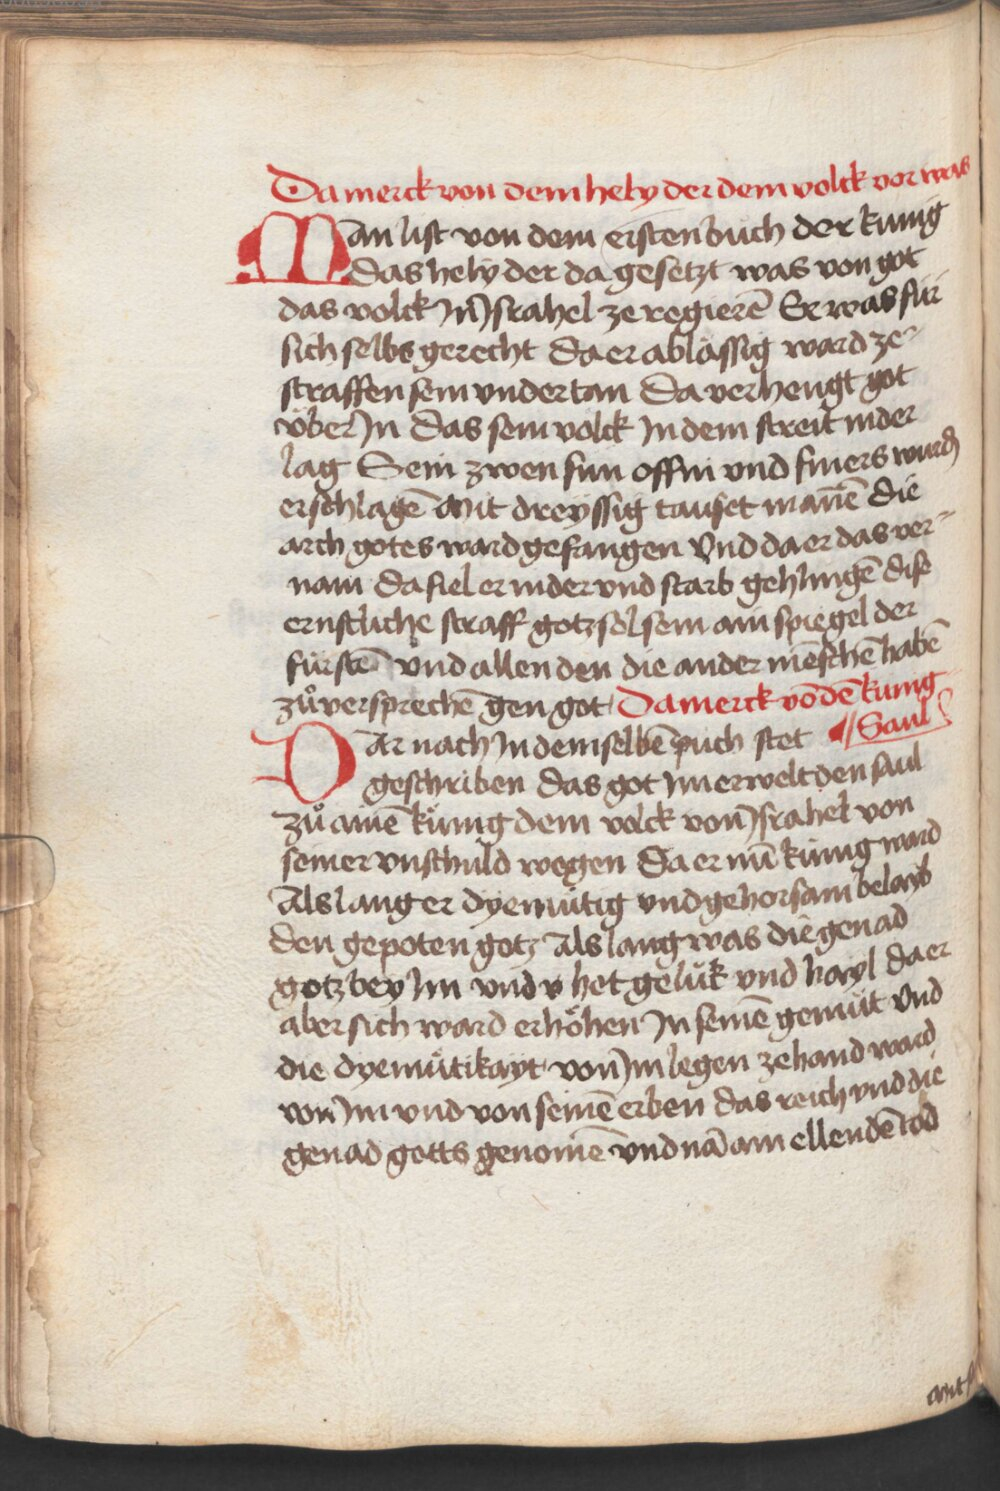 Da merck von dem hely der dem volck vor was
Man list von dem ersten buch der kunig
Das hely der da gesetzt was von got
das volck Jn Jsrahel ze regierē Er was für
sich selbs gerecht Da er ablässig ward ze-
straffen sein vndertan Da verhengt got
v̈ber Jn Das sein volck Jn dem streit nider
lag Sein zwen sun offni vnd finers wurdn̄
erschlagē Mit dreyssig tauset manē̄ Die
arch gotes ward gefangen Vnd da er das ver-
nam Da fiel er nider vnd starb gehlingē Dise
ernstliche straff gotz sol sein ain spiegel der
fürstē vnd allen den die ander mēschē habē
zů versprechē gen got Da merck vō dē kunig
Saul
Dar nach Jn dem selbē puch stet
geschriben Das got Jm erwelt den saul
zů ainē kunig dem volck von Jsrahel von
seiner vnschuld wegen Da er nū kunig ward
Als lang er dyemütig vnd gehorsam belayb
den gepoten gotz Als lang was die genad
gotz bey Jm vnd het gelük vnd hayl Da er
aber sich ward erhöhen Jn seinē gemüt Vnd
die dyemütikayt von Jm legen ze hand ward
von Jm vnd von seinē erben das reich vnd die
genad gotts genomē vnd nā̄ ain ellendē tod